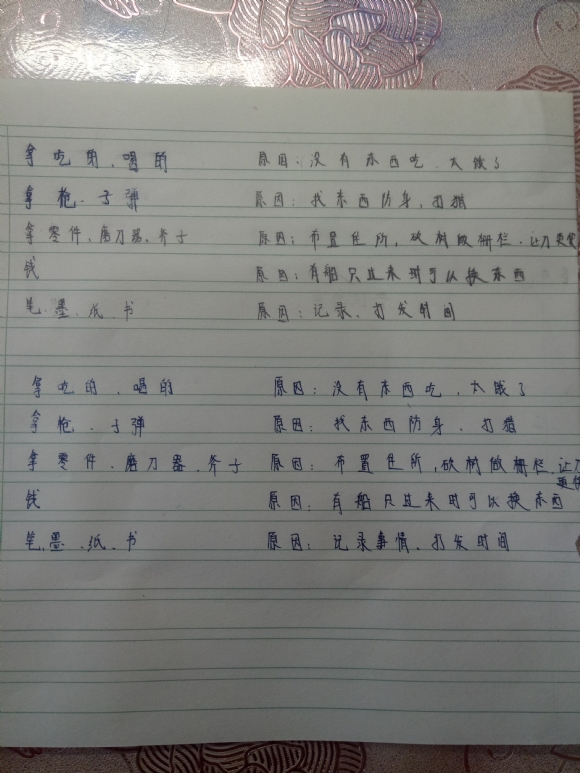 拿吃的、喝的 原因：没有东西吃、太饿了
拿枪、子弹 原因：找东西防身，打猎
拿零件、磨刀器、斧子 原因：布置住所，砍树做栅栏，让刀更
钱 原因：有船只过来时可以换东西
笔、墨、纸、书 原因：记录、打发时间
拿吃的、喝的 原因：没有东西吃，太饿了
拿枪、子弹 原因：找东西防身、打猎
拿零件、磨刀器、斧子 原因：布置住所，砍树做栅栏，让刀
更
钱 原因：有船只过来时可以换东西
笔、墨、纸、书 原因：记录事情、打发时间